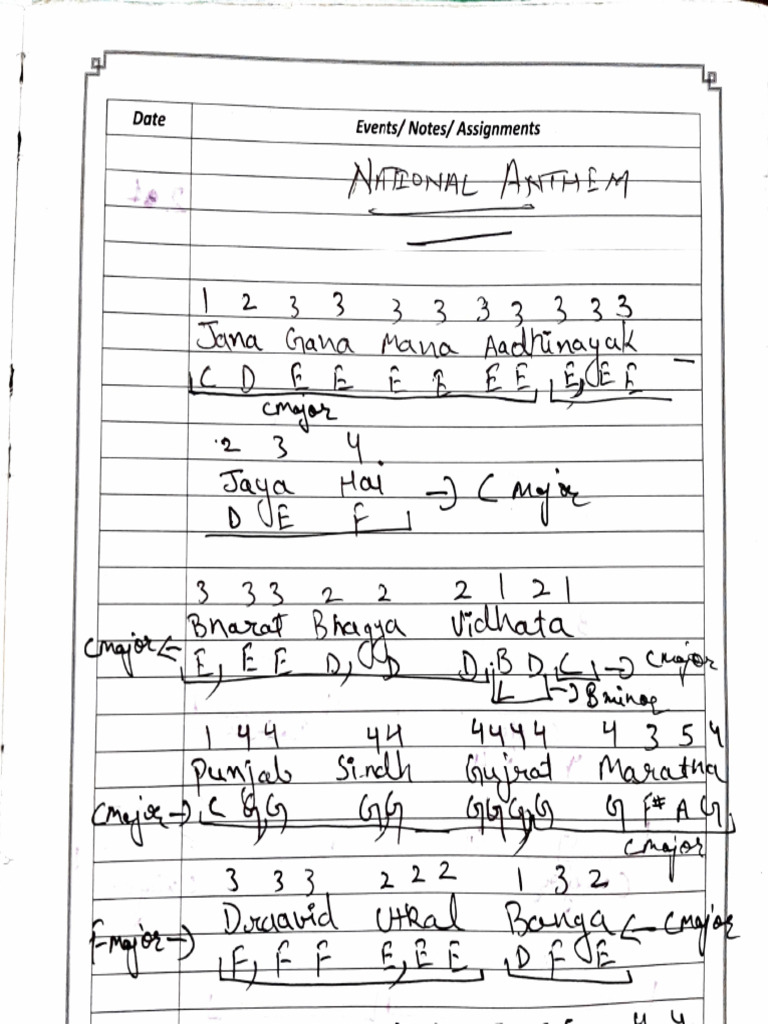 Date
Events/ Notes/ Assignments
NATIONAL ANTHEM
1 2 3 3 3 3 3 3 3 3 3
Jana Gana Mana Aadhinayak –
C D E E E E E E E, E E
Cmajor
2 3 4
Jaya Hai → C Major
D E F
3 3 3 2 2 2 1 2 1
Bharat Bhagya Vidhata
Cmajor ← E, E E D, D D, B D, C → Cmajor
→ Bminor
1 4 4 4 4 4 4 4 4 4 3 5 4
Punjab Sindh Gujrat Maratha
Cmajor → C G, G G G G G G, G G F# A G
Cmajor
3 3 3 2 2 2 1 3 2
Draavid Utkal Banga ← Cmajor
Fmajor → F, F F E, E E D F E
4 4